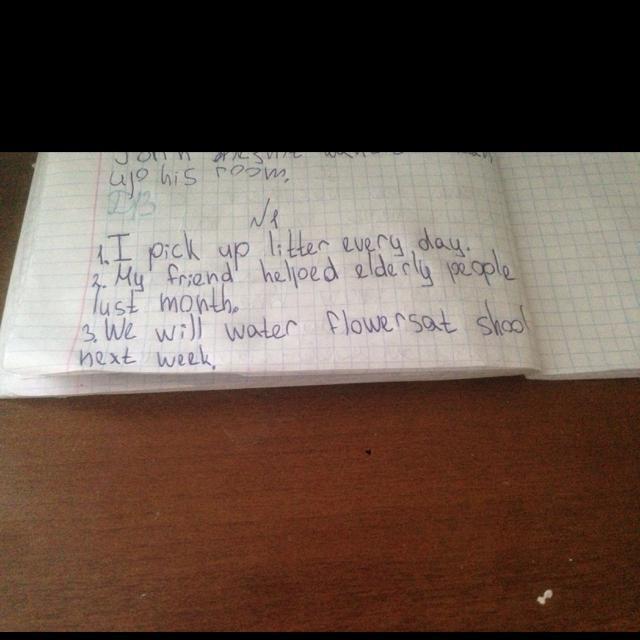 up his room.
№1
1. I pick up litter every day.
2. My friend helped elderly people
lust month.
3. We will water flowersat shool
next week.